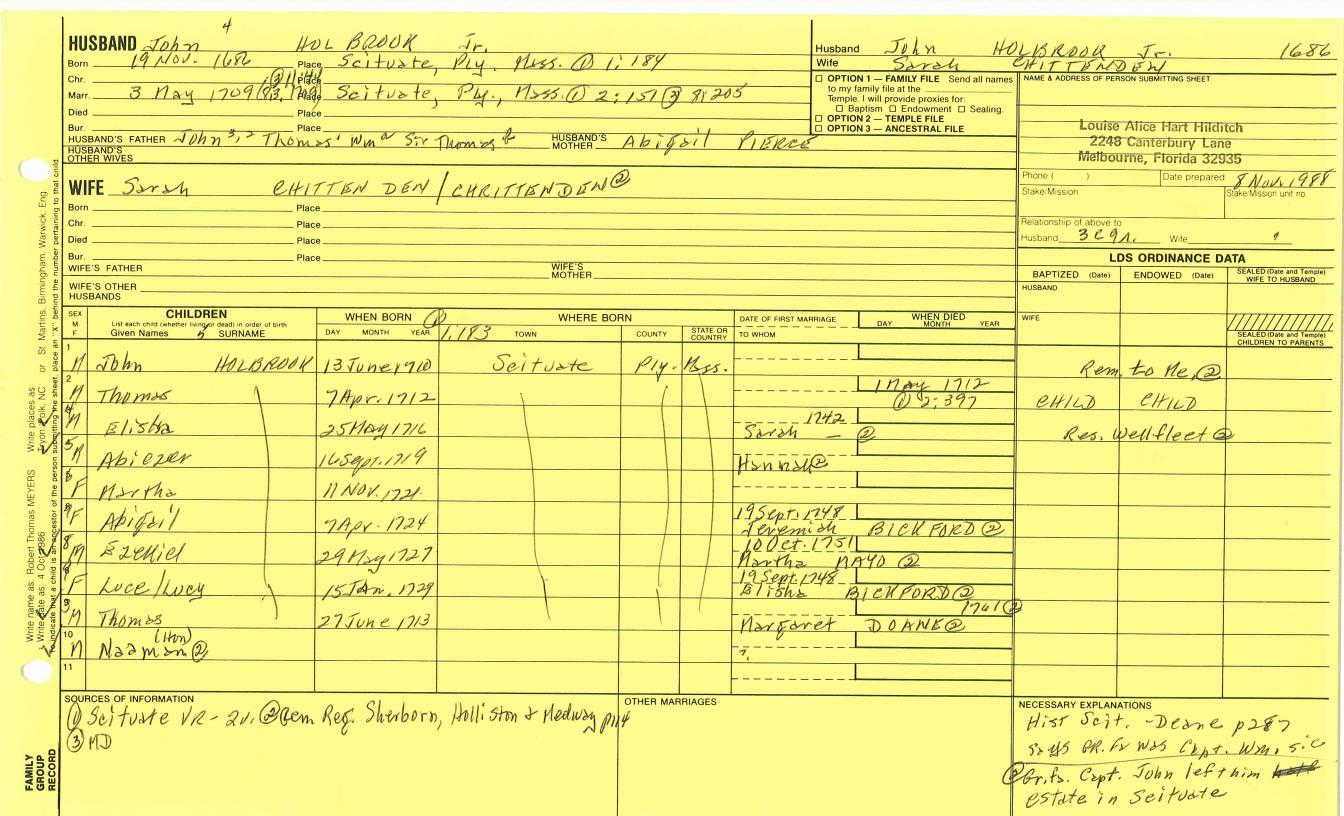 4
HUSBAND John HOLBROOK Jr.
Born 19 Nov. 1686 Place Scituate, Ply. Mass. ① 1; 184
Chr. Place
Marr. 3 May 1709 Place Scituate, Ply., Mass. ① 2; 151 ③ 8; 205
Died Place
Bur. Place
HUSBAND'S FATHER John 3, 2 Thomas' Wm Sir Thomas HUSBAND'S MOTHER Abigail PIERCE
HUSBAND'S OTHER WIVES
Husband John HOLBROOK Jr. 1686
Wife Sarah CHITTENDEN
☐ OPTION 1 — FAMILY FILE Send all names
to my family file at the
Temple. I will provide proxies for:
☐ Baptism ☐ Endowment ☐ Sealing.
☐ OPTION 2 — TEMPLE FILE
☐ OPTION 3 — ANCESTRAL FILE
NAME & ADDRESS OF PERSON SUBMITTING SHEET
Louise Alice Hart Hilditch
2248 Canterbury Lane
Melbourne, Florida 32935
Phone ( ) Date prepared 8 Nov. 1988
Stake/Mission Stake/Mission unit no.
Relationship of above to
Husband Wife
WIFE Sarah CHITTENDEN / CHRITTENDEN ②
Born Place
Chr. Place
Died Place
Bur. Place
WIFE'S FATHER WIFE'S MOTHER
WIFE'S OTHER HUSBANDS
LDS ORDINANCE DATA
BAPTIZED (Date) ENDOWED (Date) SEALED (Date and Temple) WIFE TO HUSBAND
HUSBAND
WIFE
SEALED (Date and Temple) CHILDREN TO PARENTS
SEX M F CHILDREN WHEN BORN ① WHERE BORN DATE OF FIRST MARRIAGE WHEN DIED
List each child (whether living or dead) in order of birth
Given Names 5 SURNAME DAY MONTH YEAR 1,183 TOWN COUNTY STATE OR COUNTRY TO WHOM DAY MONTH YEAR
1 M John HOLBROOK 13 June 1710 Scituate Ply. Mass. Rem. to Me. ②
2 M Thomas 7 Apr. 1712 1 May 1712 ① 2; 397 CHILD CHILD
4 M Elisha 25 May 1716 1742 Sarah — ② Res. Wellfleet ②
5 M Abiezer 16 Sept. 1719 Hannah ②
6 F Martha 11 Nov. 1721
F Abigail 7 Apr. 1724 19 Sept. 1748 Jeremiah BICKFORD ②
8 M Ezekiel 29 May 1727 10 Oct. 1751 Martha MAYO ②
F Luce/Lucy 15 Jan. 1729 19 Sept. 1748 Elisha BICKFORD ②
M Thomas 27 June 1713 Margaret DOANE ② 1761 ②
10 M Naaman (Hon) ② ?
11
SOURCES OF INFORMATION
① Scituate VR - 2v. ② Gem. Reg. Sherborn, Holliston & Medway p114
③ MD
OTHER MARRIAGES
NECESSARY EXPLANATIONS
Hist Scit. - Deane p287
says GR. Fr was Capt. Wm. sic
② Gr. fa. Capt. John left him
estate in Scituate
Write name as: Robert Thomas MEYERS Write places as: Tryon, Polk, NC or St. Martins, Birmingham, Warwick, Eng.
Write date as: 4 Oct 1986
To indicate that a child is an ancestor of the person submitting the sheet, place an "X" behind the number pertaining to that child
FAMILY GROUP RECORD